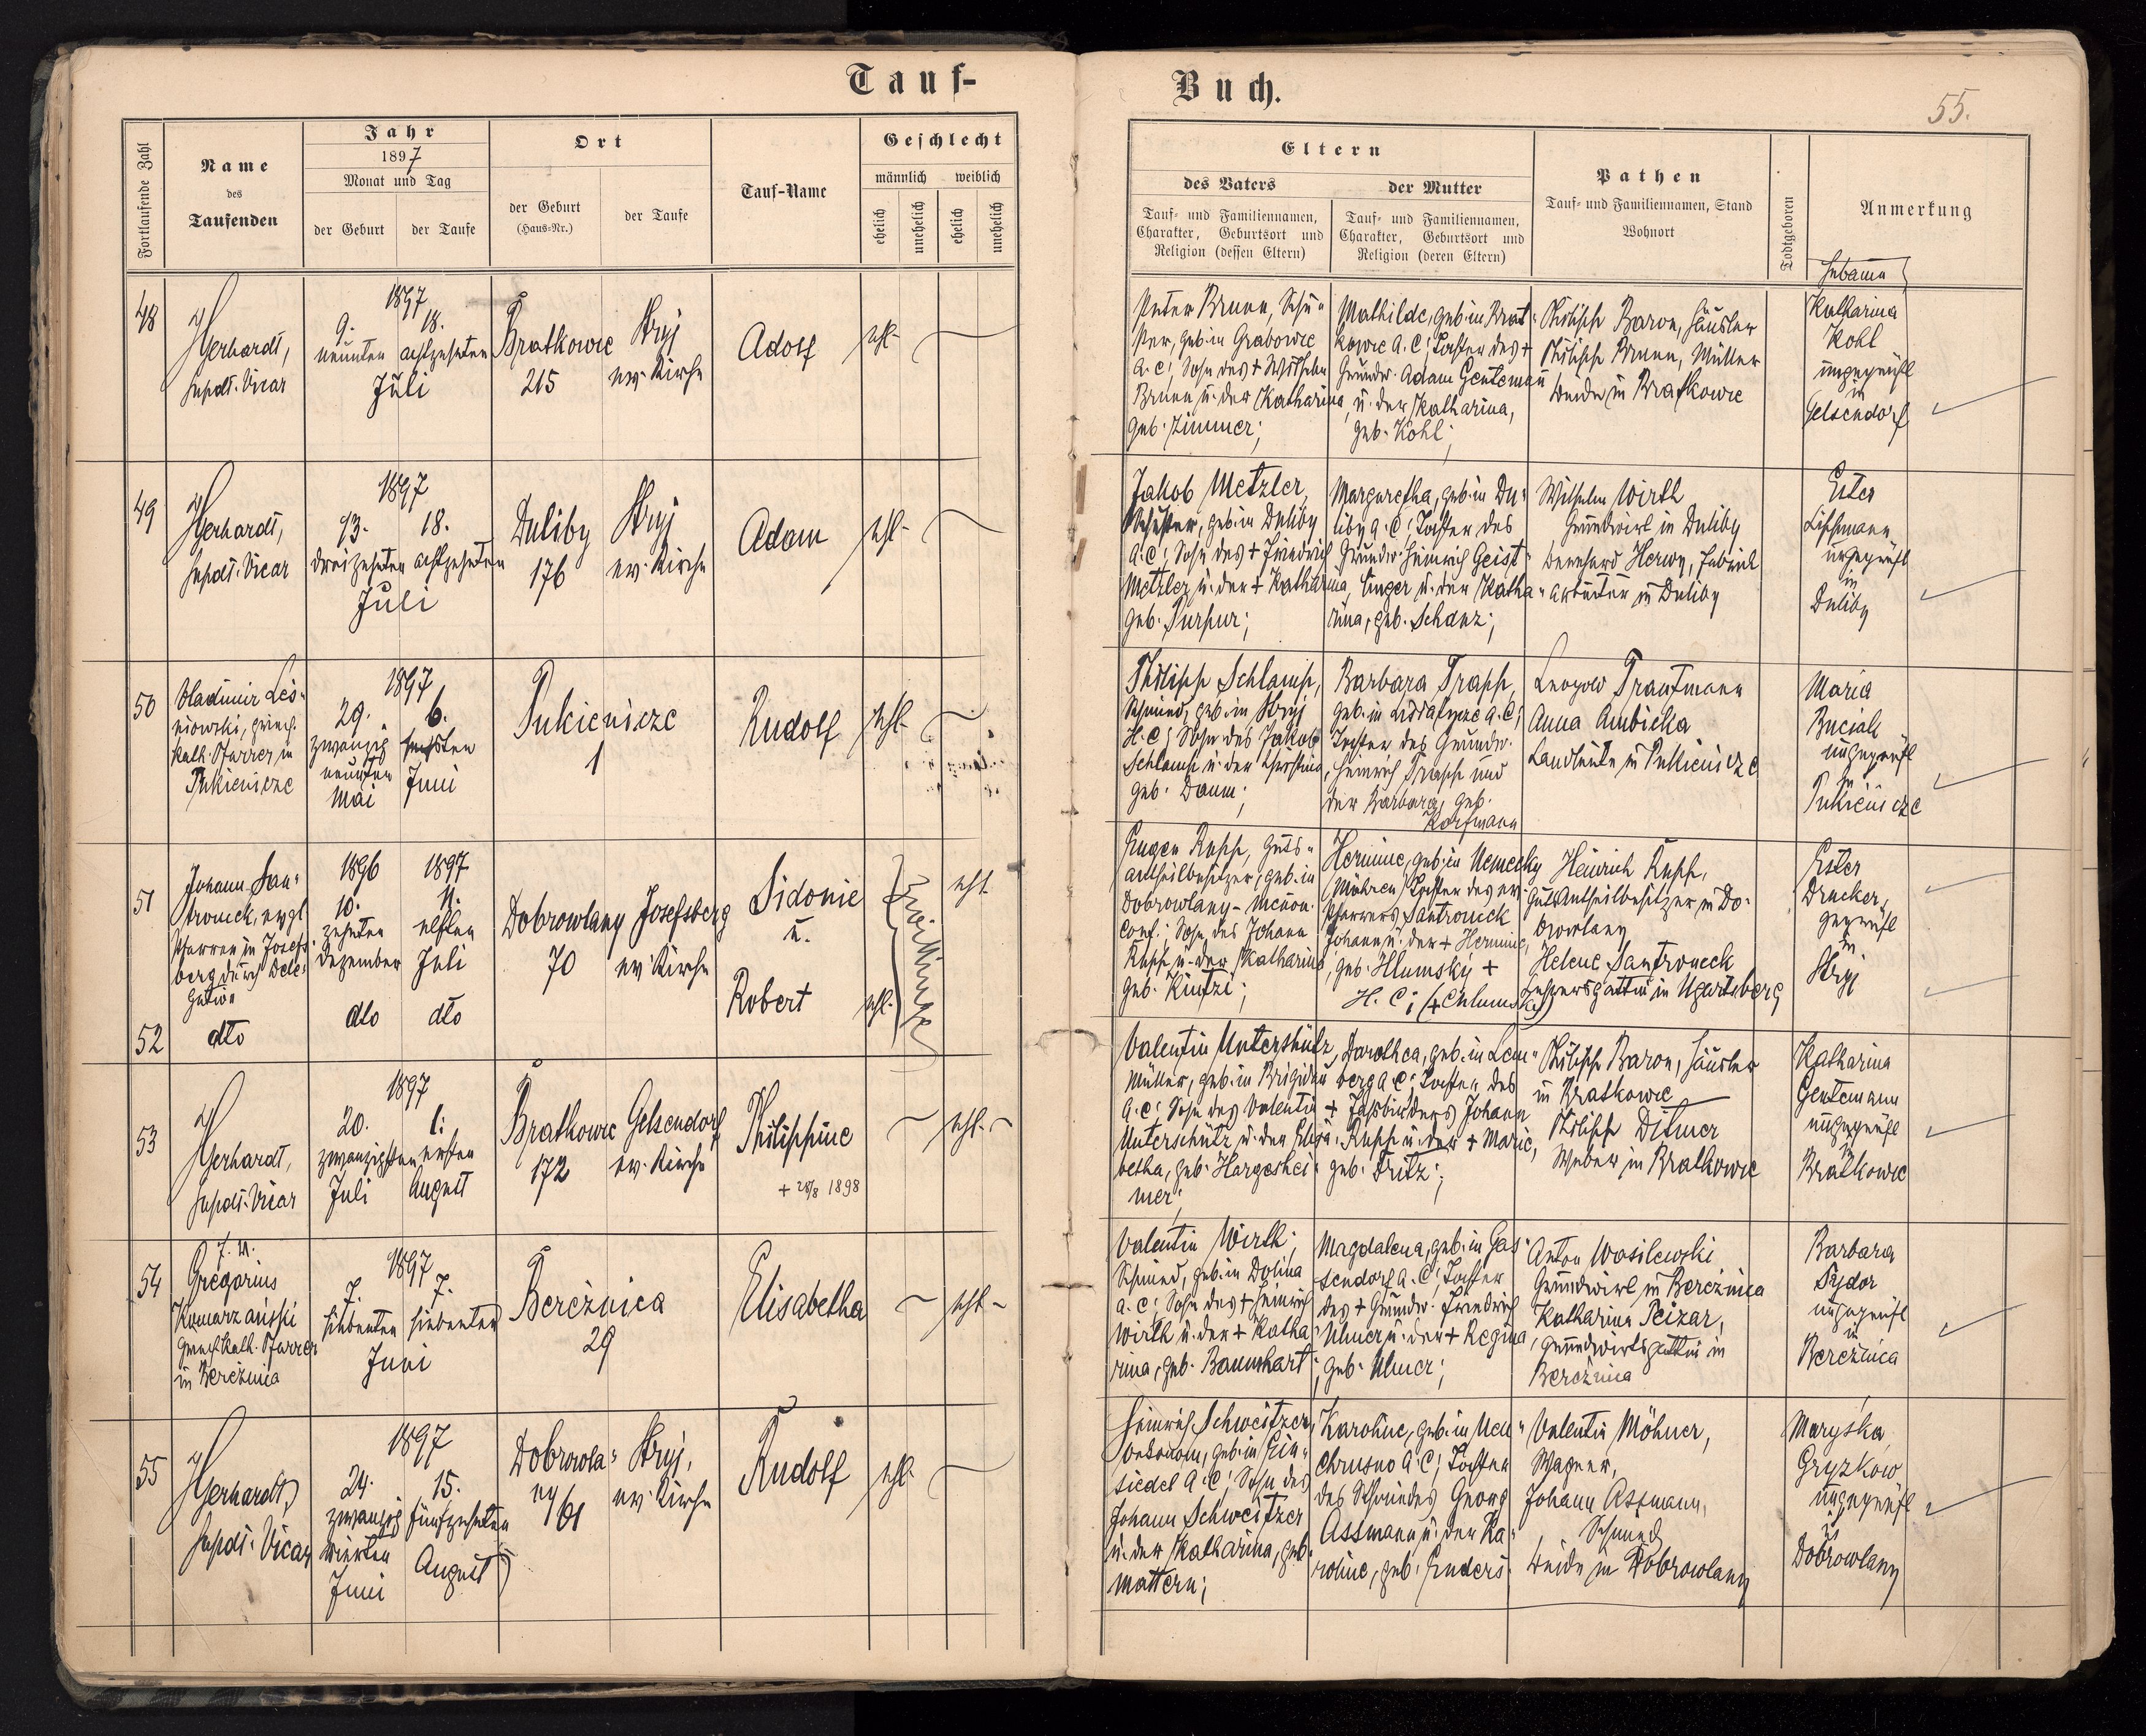 Tauf-
Buch.
55.
Fortlaufende Zahl
Name
des
Taufenden
Jahr
1897
Monat und Tag
der Geburt
der Taufe
Ort
der Geburt
(Haus-Nr.)
der Taufe
Tauf-Name
Geschlecht
männlich
weiblich
ehelich
unehelich
ehelich
unehelich
Eltern
des Vaters
Tauf- und Familiennamen,
Charakter, Geburtsort und
Religion (dessen Eltern)
der Mutter
Tauf- und Familiennamen,
Charakter, Geburtsort und
Religion (deren Eltern)
Pathen
Tauf- und Familiennamen, Stand
Wohnort
Todtgeboren
Anmerkung
Hebamme
48
Gerhardt,
Supdt. Vicar
1897
9. 18.
neunten achtzehnten
Juli
Bratkowce
215
Stryj
ev. Kirche
Adolf
ehl.
Peter Brunn, Schu-
ster, geb. in Grabowce
A. C; Sohn des + Wilhelm
Brunn u. der Katharina
geb. Zimmer;
Mathilde, geb. in Brat-
kowce A. C; Tochter des +
Grundw. Adam Gentemann
u. der Katharina,
geb. Kohl;
Philipp Baron, Häusler
Philipp Brunn, Müller
beide in Bratkowce
Katharina
Kohl
ungeprüft
in
Gelsendorf
49
Gerhardt,
Supdt. Vicar
1897
13. 18.
dreizehnten achtzehnten
Juli
Duliby
176
Stryj
ev. Kirche
Adam
ehl.
Jakob Metzler,
Schuster, geb. in Duliby
A. C; Sohn des + Friedrich
Metzler u. der + Katharina,
geb. Purpur;
Margaretha, geb. in Du-
liby A. C; Tochter des
Grundw. Heinrich Geist-
linger u. der Katha-
rina, geb. Schanz;
Wilhelm Wirth
Grundwirt in Duliby
Bernhard Herwy, Fabriks
arbeiter in Duliby
Ester
Lippmann
ungeprüft
in
Duliby
50
Vladimir Les-
niowski, griech.
kath. Pfarrer in
Pukienicze
1897
29. 6.
zwanzig sechsten
neunten
Mai Juni
Pukienicze
1
Rudolf
ehl.
Philipp Schlamp,
Schmied, geb. in Stryj
H. C; Sohn des Jakob
Schlamp u. der Christina,
geb. Daum;
Barbara Trapp,
geb. in A. C;
Tochter des Grundw.
Heinrich Trapp und
der Barbara, geb.
Korfmann
Leopold Trautmann
Anna Ambicka
Landleute in Pukienicze
Maria
Buciak
ungeprüft
in
Pukienicze
51
Johann Jan-
troneck, evgl.
Pfarrer in Josefs-
berg durch Dele-
gation
1896 1897
10. 11.
zehnten elften
Dezember Juli
Dobrowlany
70
Josefsberg
ev. Kirche
Sidonie
u.
Robert
Zwillinge
ehl.
Eugen Rupp, Guts-
antheilbesitzer, geb. in
Dobrowlany - menon.
Conf.; Sohn des Johann
Rupp u. der Katharina
geb. Kintzi;
Hermine, geb. in Nemecky
(Mähren) Tochter des ev.
Pfarrers Jantroneck
Johann u. der + Hermine,
geb. Hlumsky +
H. C; (+ Chlumsky)
Heinrich Rupp,
Gutsantheilbesitzer in Do-
browlany
Helene Jantroneck
Lehrersgattin in Ugartsberg
Ester
Drucker,
geprüft
in
Stryj
52
dto
dto dto
ehl.
53
Gerhardt,
Supdt. Vicar
1897
20. 1.
zwanzigsten ersten
Juli August
Bratkowce
172
Gelsendorf
ev. Kirche
Philippine
+ 28/8 1898
ehl.
Valentin Unterschütz,
Müller, geb. in Brigidau
A. C; Sohn des Valentin
Unterschütz u. der Elisa-
betha, geb. Hargeshei-
mer;
Dorothea, geb. in Lem-
berg A. C; Tochter des
+ Fassbinders Johann
Rupp u. der + Marie,
geb. Fritz;
Philipp Baron, Häusler
in Bratkowce
Philipp Ditmer
Weber in Bratkowce
Katharina
Gentemann
ungeprüft
in
Bratkowce
54
Gregorius
Komarzanski
griech. kath. Pfarrer
in Bereźnica
1897
7. 7.
siebenten siebenten
Juni
Bereźnica
29
Elisabetha
ehl.
Valentin Wirth;
Schmied, geb. in Dolina
A. C; Sohn des + Heinrich
Wirth u. der + Katha-
rina, geb. Baumhart;
Magdalena, geb. in Gas-
sendorf A. C; Tochter
des + Grundw. Friedrich
Ulmer u. der + Regina,
geb. Ulmer;
Anton Wasilewski
Grundwirt in Bereźnica
Katharina Peizar,
Grundwirtsgattin in
Bereźnica
Barbara
Sydor
ungeprüft
in
Bereźnica
55
Gerhardt,
Supdt. Vicar
1897
24. 15.
zwanzig fünfzehnten
vierten
Juni August
Dobrowla-
ny/61
Stryj,
ev. Kirche
Rudolf
ehl.
Heinrich Schweitzer,
Oekonom, geb. in Ein-
siedel A. C; Sohn des
Johann Schweitzer
u. der Katharina, geb.
Mattern;
Karoline, geb. in Neu-
Chrusno A. C; Tochter
des Schmiedes Georg
Assmann u. der Ka-
roline, geb. Enders
Valentin Möhner,
Wagner,
Johann Assmann,
Schmied
beide in Dobrowlany
Maryśka
Gryzkow
ungeprüft
in
Dobrowlany